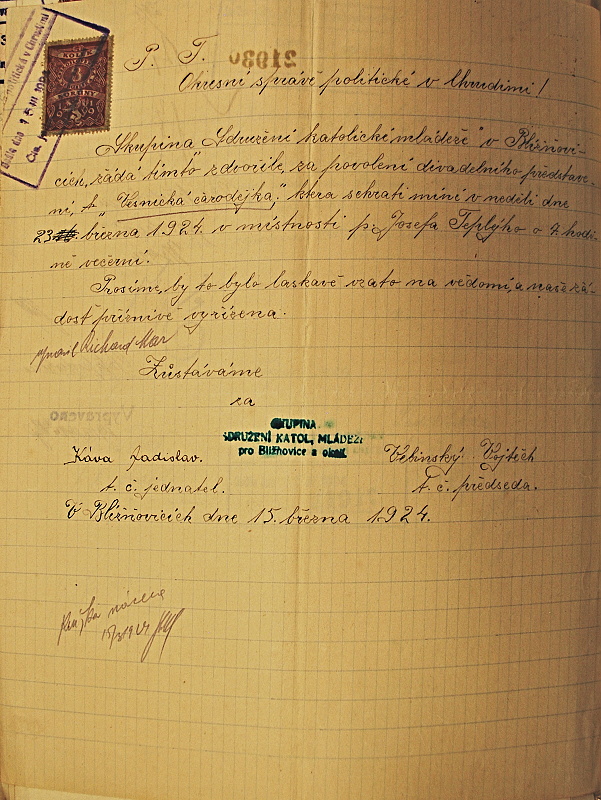 P. T.
Okresní správě politické v Chrudimi!
Skupina „Sdružení katolické mládeže" v Blížňovi-
cích, žádá tímto zdvořile, za povolení divadelního představe-
ní, „Vesnická čarodějka". která sehrati míní v neděli dne
23. března 1924. v místnosti p. Josefa Teplýho o 7. hodi-
ně večerní.
Prosíme, by to bylo laskavě vzato na vědomí, a naše žá-
dost příznivě vyřízena.
Richard Mar
Zůstáváme
za
SKUPINA
SDRUŽENÍ KATOL, MLÁDEŽE
pro Blížňovice a okolí.
Káva Ladislav. Vebinský Vojtěch
t. č. jednatel. t. č. předseda.
V Blížňovicích dne 15. března 1924.
15/3 1924
21030
KOLEK
3
Vypraveno